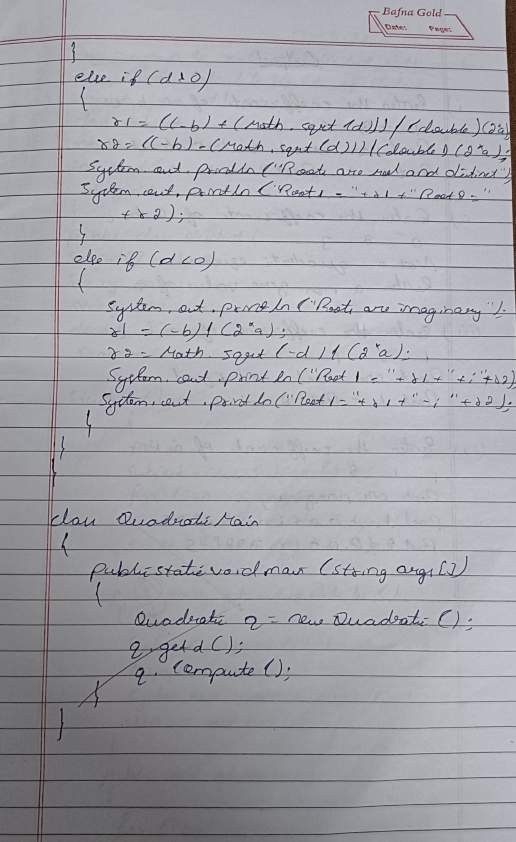 Bafna Gold
Date: Page:
}
else if (d>0)
{
r1 = ((-b) + (Math.sqrt (d))) / (double) (2*a)
r2 = ((-b) - (Math.sqrt (d))) / (double) (2*a);
System.out.println ("Roots are real and distinct")
System.out.println ("Root1 = "+r1+"Root2="
+r2);
}
else if (d<0)
{
System.out.println ("Roots are imaginary");
r1 = (-b) / (2*a);
r2 = Math.sqrt (-d) / (2*a);
System.out.println ("Root 1 = "+r1+"+i"+r2)
System.out.println ("Root 1 = "+r1+"-i"+r2);
}
}
}
class QuadraticMain
{
public static void main (String args[])
{
Quadratic q = new Quadratic ();
q.getd ();
q.compute ();
}
}